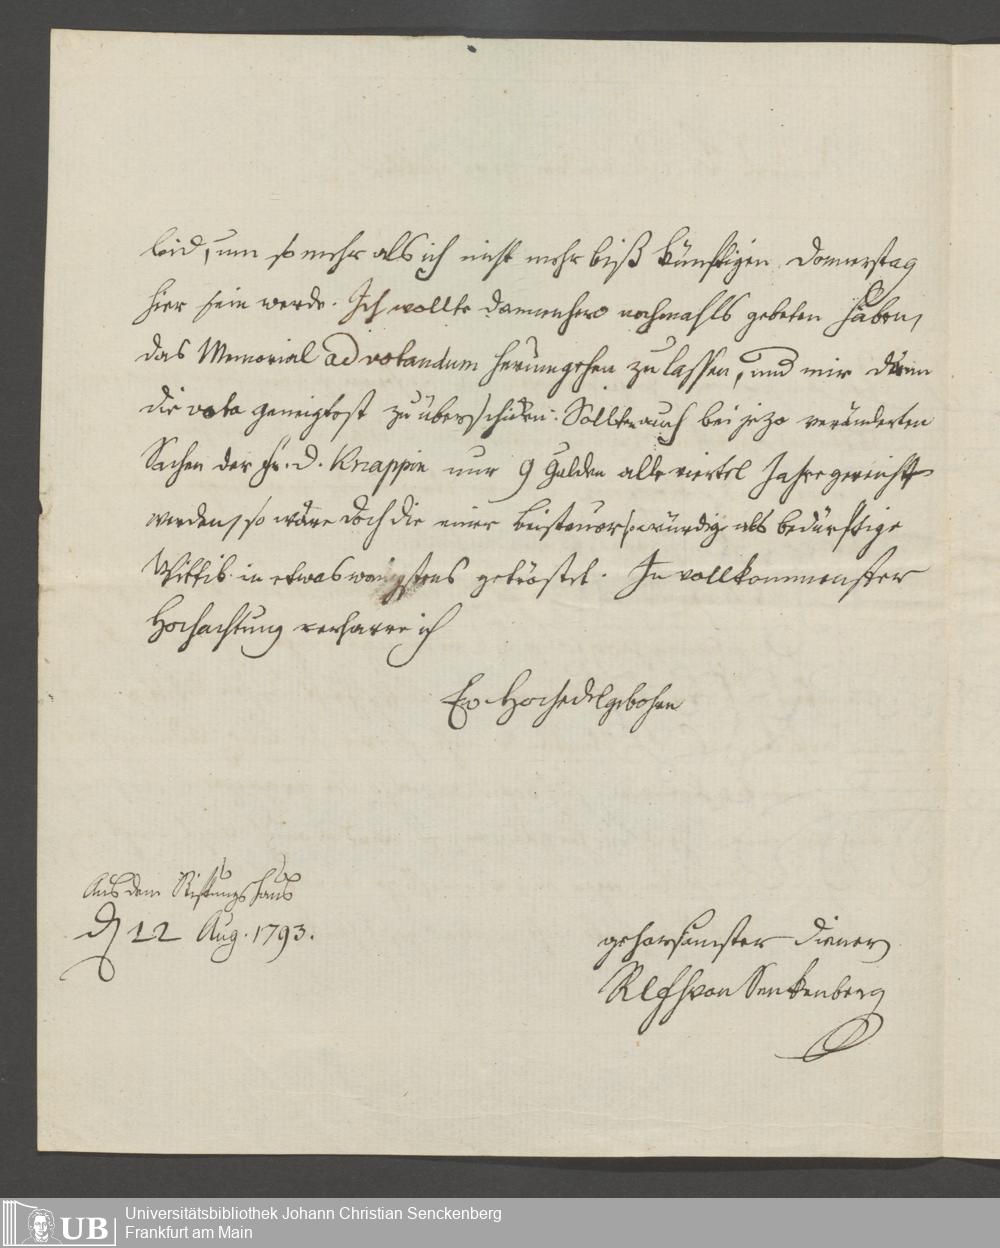 leid, um so mehr als ich nicht mehr biß künftigen Donnerstag
hier sein werde. Ich wollte dannenhero nochmahls gebeten haben,
das Memorial ad votandum herumgehen zu lassen, und mir dann
die vota geneigtest zu überschicken. Sollten auch bei jezo veränderten
Sachen der Fr. D. Knappin nur 9 Gulden alle viertel Jahre gereicht
werden, so wäre doch die einer Beisteuer so würdige als bedürftige
Wittib in etwas wenigstens getröstet. In vollkommenster
Hochachtung verharre ich
Ew. Hochedelgebohrn
Aus dem Stiftungshaus
d 12 Aug. 1793.
gehorsamster Diener
von Senckenberg
UB
Universitätsbibliothek Johann Christian Senckenberg
Frankfurt am Main